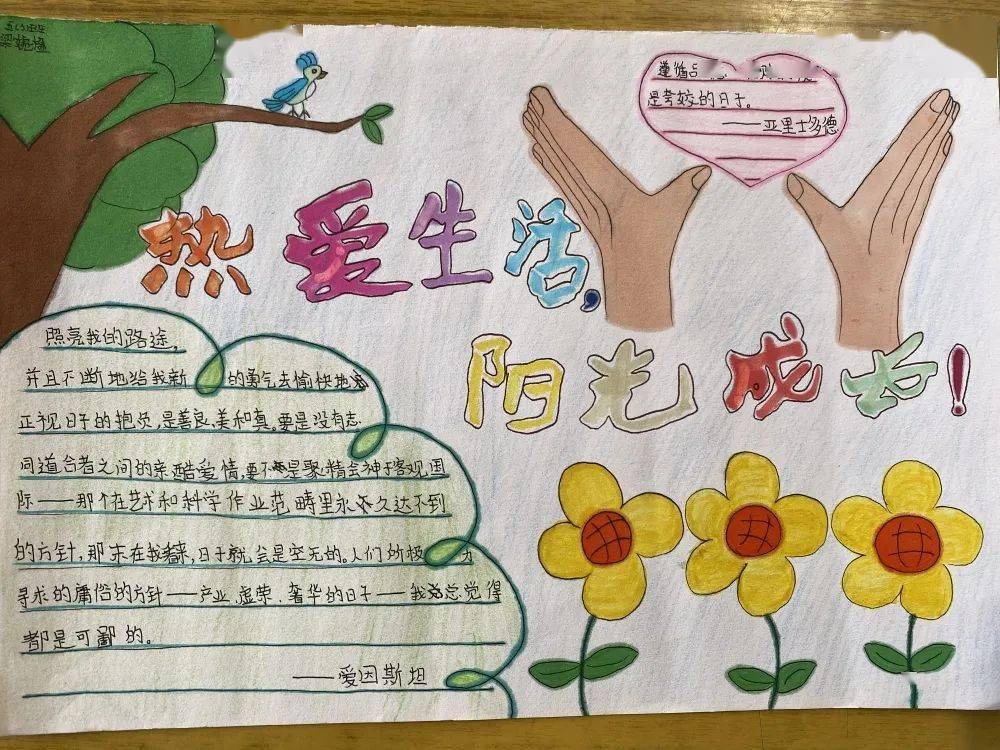 热爱生活,
阳光成长!
是考较的日子。
——亚里士多德
照亮我的路途,
并且不断地给我新的勇气去愉快地
正视日子的抱负,是善良、美和真。要是没有志
同道合者之间的亲酷爱情,要不是聚精会神于客观国
际——那个在艺术和科学作业范畴里永久达不到
的方针,那末在我看来,日子就会是空无的。人们所极为
寻求的庸俗的方针——产业、虚荣、奢华的日子——我总觉得
都是可鄙的。
——爱因斯坦